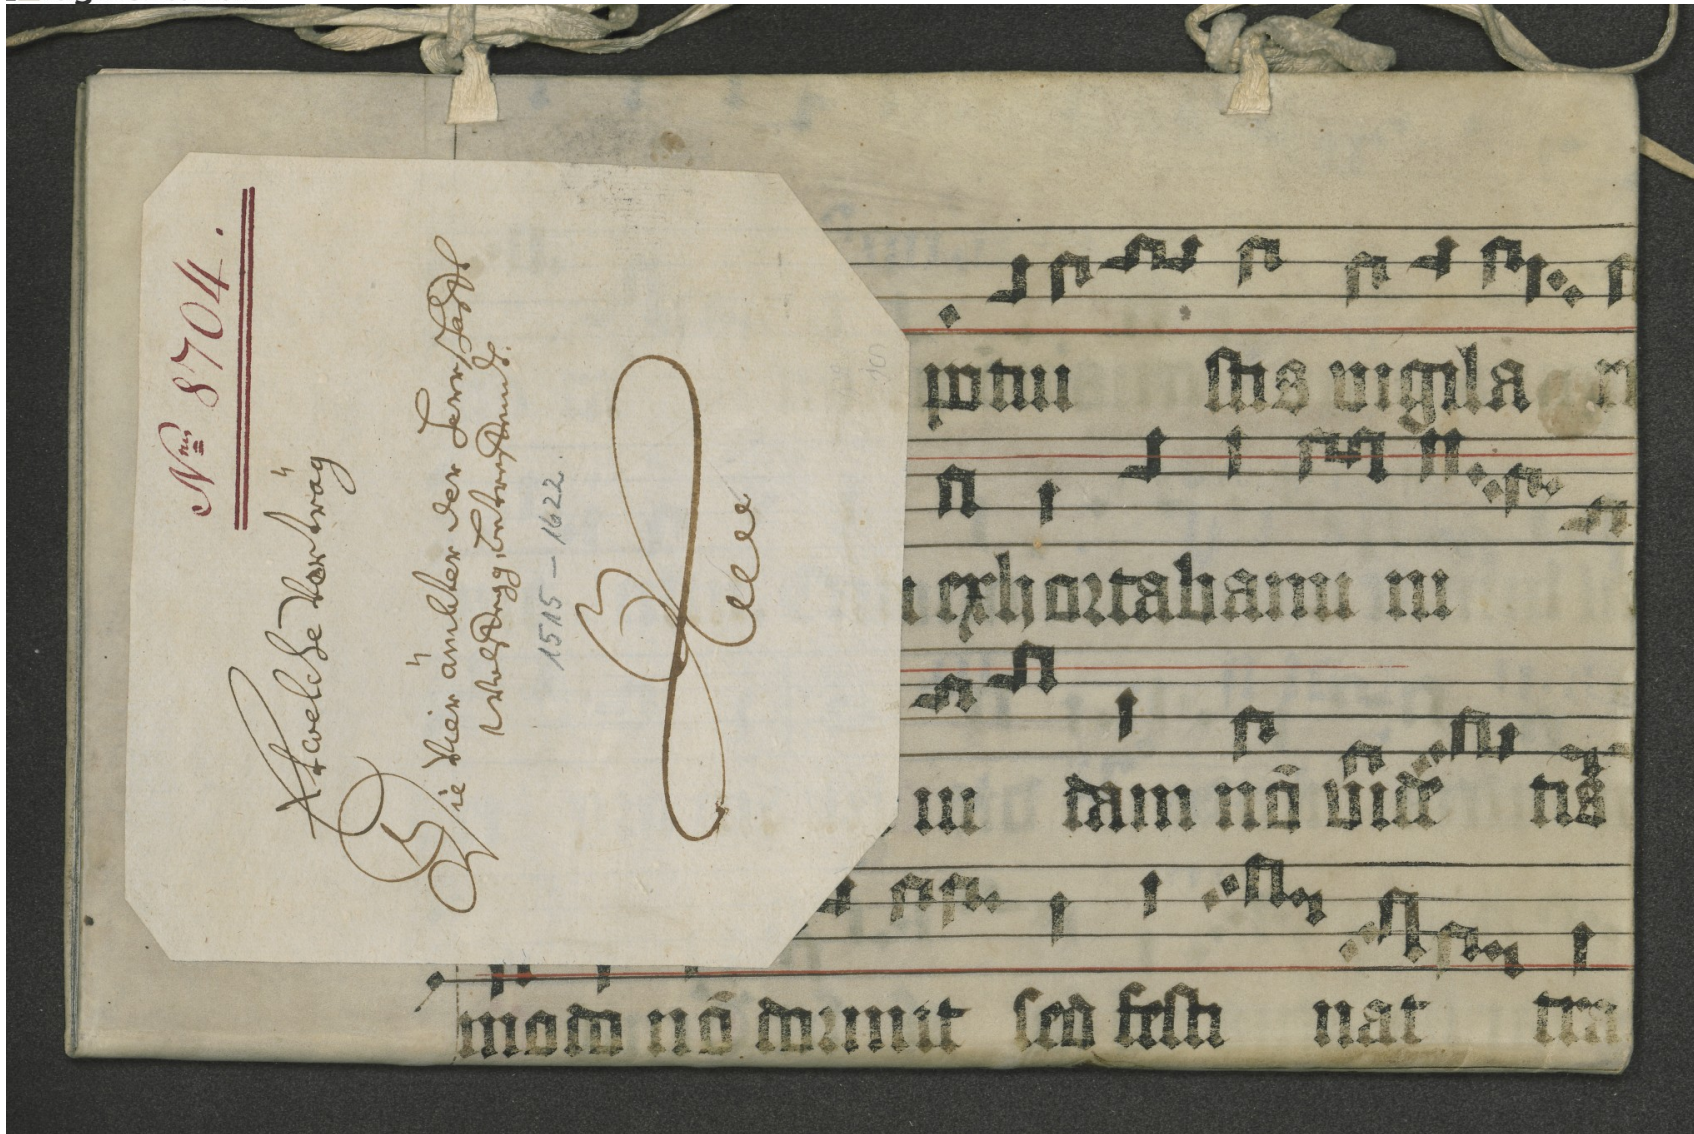 Nrus 8704.
Etwelche Verträg
Die Vier ämbter der Herrschafft
Wolfegg betreffend.
1515 – 1622.
potui stis vigila
exhortabami ni
iu dam nō vide tis
modo nō dormit sed festi nat tra